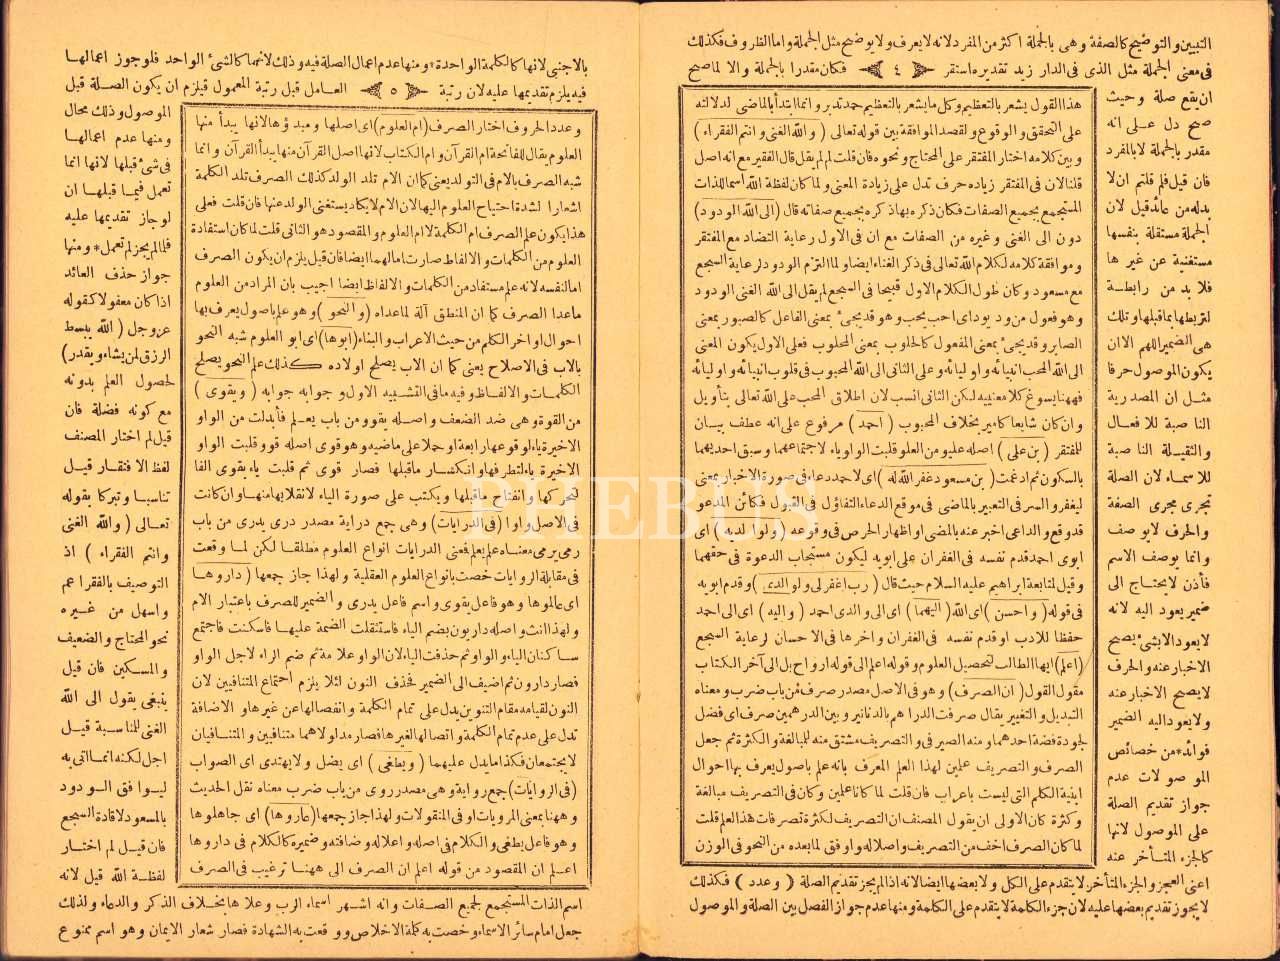 التبيين والتوضيح كالصفة وهى بالجملة اكثر من المفرد لانه لا يعرف ولا يوضح مثل الجملة واما الظروف فكذلك
فى معنى الجملة مثل الذى فى الدار زيد تقديره استقر ٤ فكان مقدرا بالجملة والا لما صح
ان يقع صلة وحيث
صح دل على انه
مقدر بالجملة لا بالمفرد
فان قيل فلم قلتم ان لا
بد له من عائد قيل لان
الجملة مستقلة بنفسها
مستغنية عن غير ها
فلا بد من رابطة
لتربطها بما قبلها وتلك
هى الضمير اللهم الا ان
يكون الموصول حرفا
مثل ان المصدرية
النا صبة للا فعال
والثقيلة النا صبة
للا سماء لان الصلة
تجرى مجرى الصفة
والحرف لا يو صف
وانما يوصف الاسم
فأذن لا يحتاج الى
ضمير يعود اليه لانه
لا يعود الا بشئ يصح
الاخبار عنه والحرف
لا يصح الاخبار عنه
ولا يعود اليه الضمير
فوائد من خصائص
المو صو لات عدم
جواز تقديم الصلة
على الموصول لانها
كالجزء المتأخر عنه
اعنى العجز والجزء المتأخر لا يتقدم على الكل ولا بعضها ايضا لانه اذا لم يجز تقديم الصلة ( وعدد ) فكذلك
لا يجوز تقديم بعضها عليه لان جزء الكلمة لا يتقدم على الكلمة ومنها عدم جواز الفصل بين الصلة والموصول
هذا القول يشعر بالتعظيم وكل ما يشعر بالتعظيم حمد تدبر وانما ابتدأ بالماضى لدلالته
على التحقق والوقوع ولقصد الموافقة بين قوله تعالى ( والله الغنى وانتم الفقراء )
وبين كلامه اختار المفتقر على المحتاج ونحوه فان قلت لم لم يقل قال الفقير مع انه اصل
قلنا لان فى المفتقر زياده حرف تدل على زيادة المعنى ولما كان لفظة الله اسما للذات
المستجمع بجميع الصفات فكان ذكره بها ذكره بجميع صفاته قال (الى الله الودود)
دون الى الغنى وغيره من الصفات مع ان فى الاول رعاية التضاد مع المفتقر
وموافقة كلامه لكلام الله تعالى فى ذكر الغناء ايضا ولما التزم الودود لرعاية السجع
مع مسعود وكان طول الكلام الاول قبيحا فى السجع لم يقل الى الله الغنى الودود
وهو فعول من ود يود اى احب يحب وهو قد يجئ بمعنى الفاعل كالصبور بمعنى
الصابر وقد يجئ بمعنى المفعول كالحلوب بمعنى المحلوب فعلى الاول يكون المعنى
الى الله المحب انبيائه واوليائه وعلى الثانى الى الله المحبوب فى قلوب انبيائه واوليائه
فههنا يسوغ كلا معنييه لكن الثانى انسب لان اطلاق المحب على الله تعالى بتأويل
وان كان شايعا كامر بخلاف المحبوب ( احمد ) مرفوع على انه عطف بيان
للمفتقر ( بن على ) اصله عليو من العلو قلبت الواو ياء لاجتماعهما وسبق احديهما
بالسكون ثم ادغمت ( بن مسعود غفر الله له ) اى لاحمد دعاء فى صورة الاخبار بمعنى
ليغفر والسر فى التعبير بالماضى فى موقع الدعاء التفاؤل فى القبول فكأن المدعو
قد وقع والداعى اخبر عنه بالمضى او اظهار الحرص فى وقوعه ( ولوالديه ) اى
ابوى احمد قدم نفسه فى الغفران على ابويه ليكون مستجاب الدعوة فى حقهما
وقيل لمتابعة ابراهيم عليه السلام حيث قال ( رب اغفر لى ولوالدى ) وقدم ابويه
فى قوله ( واحسن ) اى الله ( اليهما ) اى الى والدى احمد ( واليه ) اى الى احمد
حفظا للادب او قدم نفسه فى الغفران واخرها فى الاحسان لرعاية السجع
(اعلم) ايها الطالب لتحصيل العلوم وقوله اعلم الى قوله ارواح بل الى آخر الكتاب
مقول القول ( ان الصرف ) وهو فى الاصل مصدر صرف من باب ضرب ومعناه
التبديل والتغيير يقال صرفت الدراهم بالدنانير وبين الدرهمين صرف اى فضل
لجودة فضة احدهما ومنه الصير فى والتصريف مشتق منه للمبالغة والكثرة ثم جعل
الصرف والتصريف علمين لهذا العلم المعرف بانه علم باصول يعرف بها احوال
ابنية الكلم التى ليست باعراب فان قلت لما كانا علمين وكان فى التصريف مبالغة
وكثرة كان الاولى ان يقول المصنف ان التصريف لكثرة تصرفات هذا العلم قلت
لما كان الصرف اخف من التصريف واصلاله واوفق لما بعده من النحو فى الوزن
بالاجنبى لانها كالكلمة الواحدة ومنها عدم اعمال الصلة فيه وذلك لانهما كالشئ الواحد فلو جوز اعمالها
فيه يلزم تقديمها عليه لان رتبة ٥ العامل قبل رتبة المعمول فيلزم ان يكون الصلة قبل
الموصول وذلك محال
ومنها عدم اعمالها
فى شئ قبلها لانها انما
تعمل فيما قبلها ان
لو جاز تقديمها عليه
فلما لم يجز لم تعمل ومنها
جواز حذف العائد
اذا كان مفعولا كقوله
عز وجل ( الله يبسط
الرزق لمن يشاء ويقدر)
لحصول العلم بدونه
مع كونه فضلة فان
قيل لم اختار المصنف
لفظ الا فتقار قيل
تناسبا وتبركا بقوله
تعالى ( والله الغنى
وانتم الفقراء ) اذ
التوصيف بالفقر اعم
واسهل من غيره
نحو المحتاج والضعيف
والمسكين فان قيل
ينبغى يقول الى الله
الغنى للمناسبة قيل
اجل لكنه انما اتى به
ليوافق الودود
بالمسعود لافادة السجع
فان قيل لم اختار
لفظة الله قيل لانه
اسم الذات المستجمع لجميع الصفات وانه اشهر اسماء الرب وعلا ها بخلاف الذكر والدعاء ولذلك
جعل امام سائر الاسماء وخصت به كلمة الاخلاص ووقعت به الشهادة فصار شعار الايمان وهو اسم ممنوع
وعدد الحروف اختار الصرف (ام العلوم) اى اصلها ومبدؤها لانها يبدأ منها
العلوم يقال للفاتحة ام القرآن وام الكتاب لانها اصل القرآن منها يبدأ القرآن وانما
شبه الصرف بالام فى التولد يعنى كما ان الام تلد الولد كذلك الصرف تلد الكلمة
اشعارا لشدة احتياج العلوم اليها لان الام لا يكاد يستغنى الولد عنها فان قلت فعلى
هذا يكون علم الصرف ام الكلمة لا ام العلوم والمقصود هو الثانى قلت لما كان استفادة
العلوم من الكلمات والالفاظ صارت اما لهما ايضا فان قيل يلزم ان يكون الصرف
اما لنفسه لانه علم مستفاد من الكلمات والالفاظ ايضا اجيب بان المراد من العلوم
ماعدا الصرف كما ان المنطق آلة لما عداه ( والنحو ) وهو علم باصول يعرف بها
احوال اواخر الكلم من حيث الاعراب والبناء (ابوها) اى ابو العلوم شبه النحو
بالاب فى الاصلاح يعنى كما ان الاب يصلح اولاده كذلك علم النحو يصلح
الكلمات والالفاظ وفيه ما فى التشبيه الاول وجوابه جوابه ( ويقوى )
من القوة وهى ضد الضعف واصله يقوو من باب يعلم فأبدلت من الواو
الاخيرة ياء لوقوعها رابعة او حملا على ماضيه وهو قوى اصله قوو قلبت الواو
الاخيرة ياء لتطرفها وانكسار ماقبلها فصار قوى ثم قلبت ياء يقوى الفا
لتحركها وانفتاح ماقبلها ويكتب على صورة الياء لانقلابها منها وان كانت
فى الاصل واوا ( فى الدرايات ) وهى جمع دراية مصدر درى يدرى من باب
رمى يرمى معناه علم يعلم فعنى الدرايات انواع العلوم مطلقا لكن لما وقعت
فى مقابلة الروايات خصت بانواع العلوم العقلية ولهذا جاز جمعها ( داروها )
اى عالموها وهو فاعل يقوى واسم فاعل يدرى والضمير للصرف باعتبار الام
ولهذا انث واصله داريون بضم الياء فاستثقلت الضمة عليها فاسكنت فاجتمع
ساكنان الياء والواو ثم حذفت الياء لان الواو علامة ثم ضم الراء لاجل الواو
فصار دارون ثم اضيف الى الضمير فحذف النون لئلا يلزم اجتماع المتنافيين لان
النون لقيامه مقام التنوين يدل على تمام الكلمة وانفصالها عن غيرها والاضافة
تدل على عدم تمام الكلمة واتصالها لغيرها فصار مدلولاهما متنافيين والمتنافيان
لا يجتمعان فكذا مايدل عليهما ( ويطغى ) اى يضل ولا يهتدى اى الصواب
(فى الروايات) جمع رواية وهى مصدر روى من باب ضرب معناه نقل الحديث
وههنا بمعنى المرويات او فى المنقولات ولهذا جاز جمعها (عاروها) اى جاهلوها
وهو فاعل يطغى والكلام فى اصله واعلاله واضافته وضميره كالكلام فى داروها
اعلم ان المقصود من قوله اعلم ان الصرف الى ههنا ترغيب فى الصرف
PHEBUS